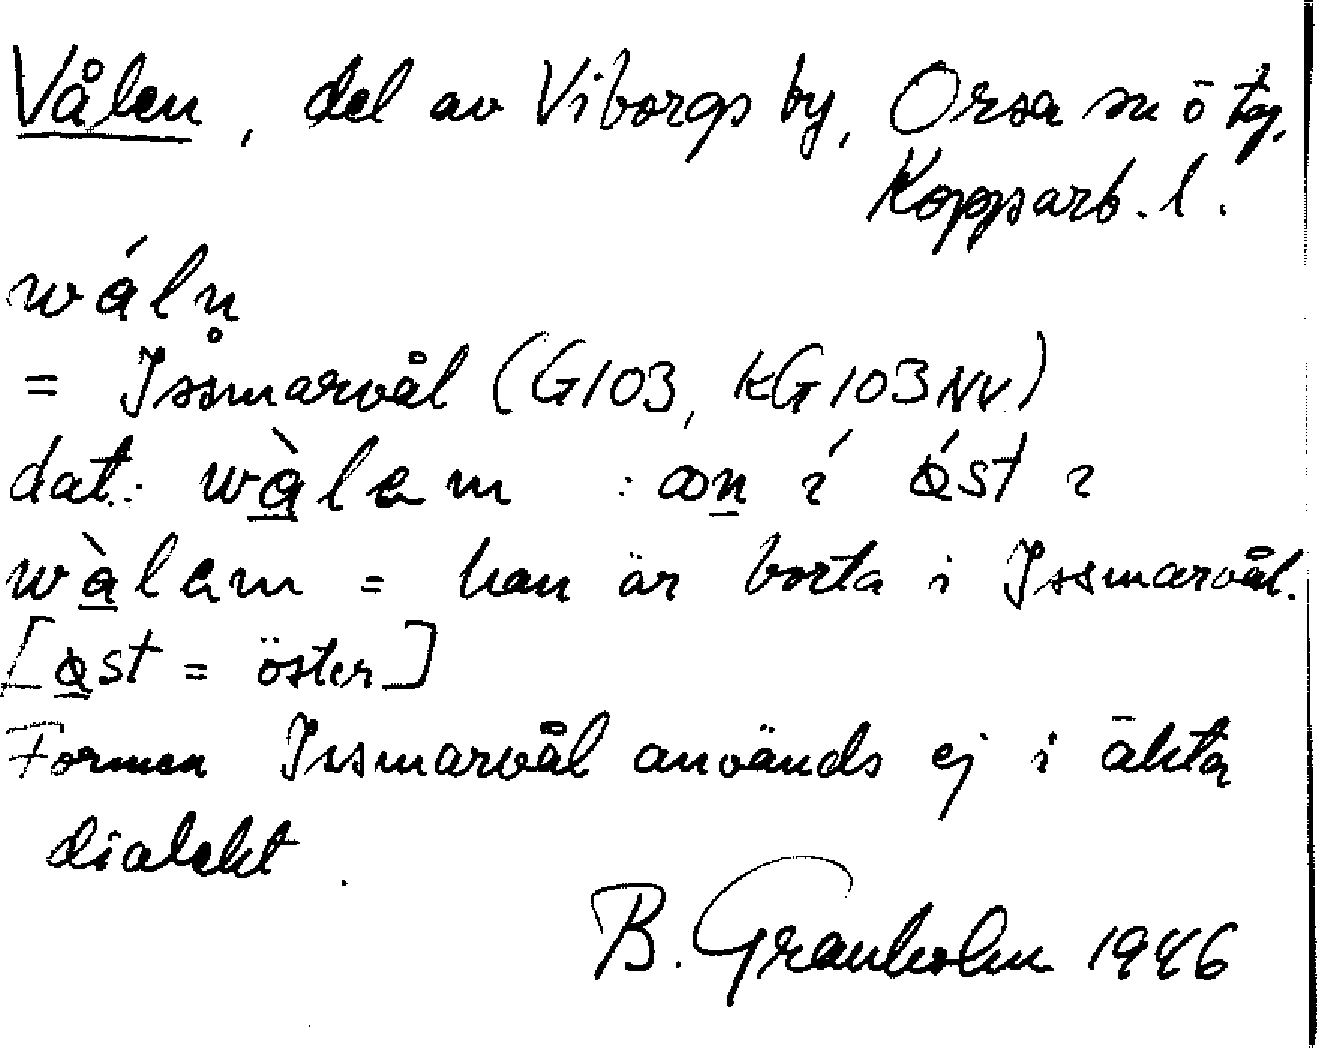 Vålen, del av Viborgs by, Orsa sn ö tg.
Kopparb. l.
wáln̥
= Issmarvål (G103, KG103NV)
dat: wàlem : æn í st i
wàlem = han är borta i Issmarvål.
[st = öster]
Formen Issmarvål används ej i äkta
dialekt.
B. Granholm 1946